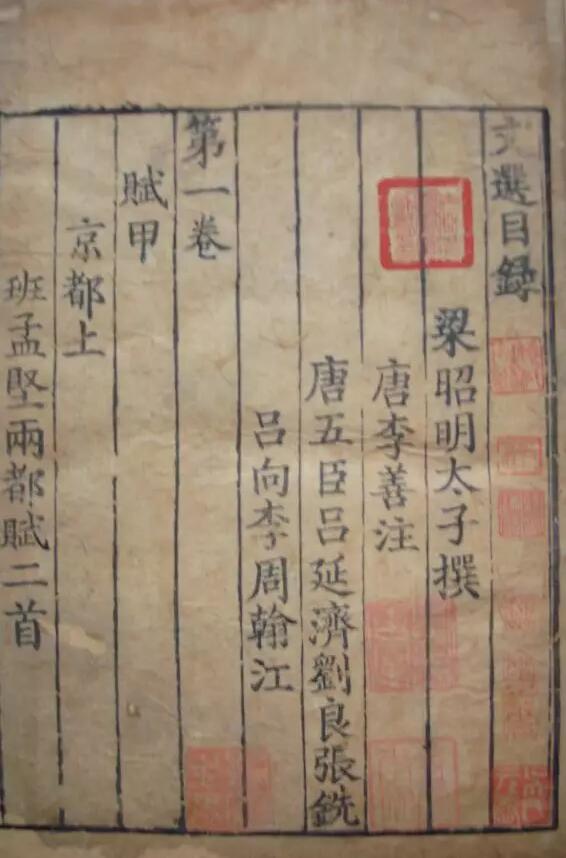 文選目録
梁昭明太子撰
唐李善注
唐五臣吕延濟劉良張銑
吕向李周翰江
第一卷
賦甲
京都上
班孟堅兩都賦二首